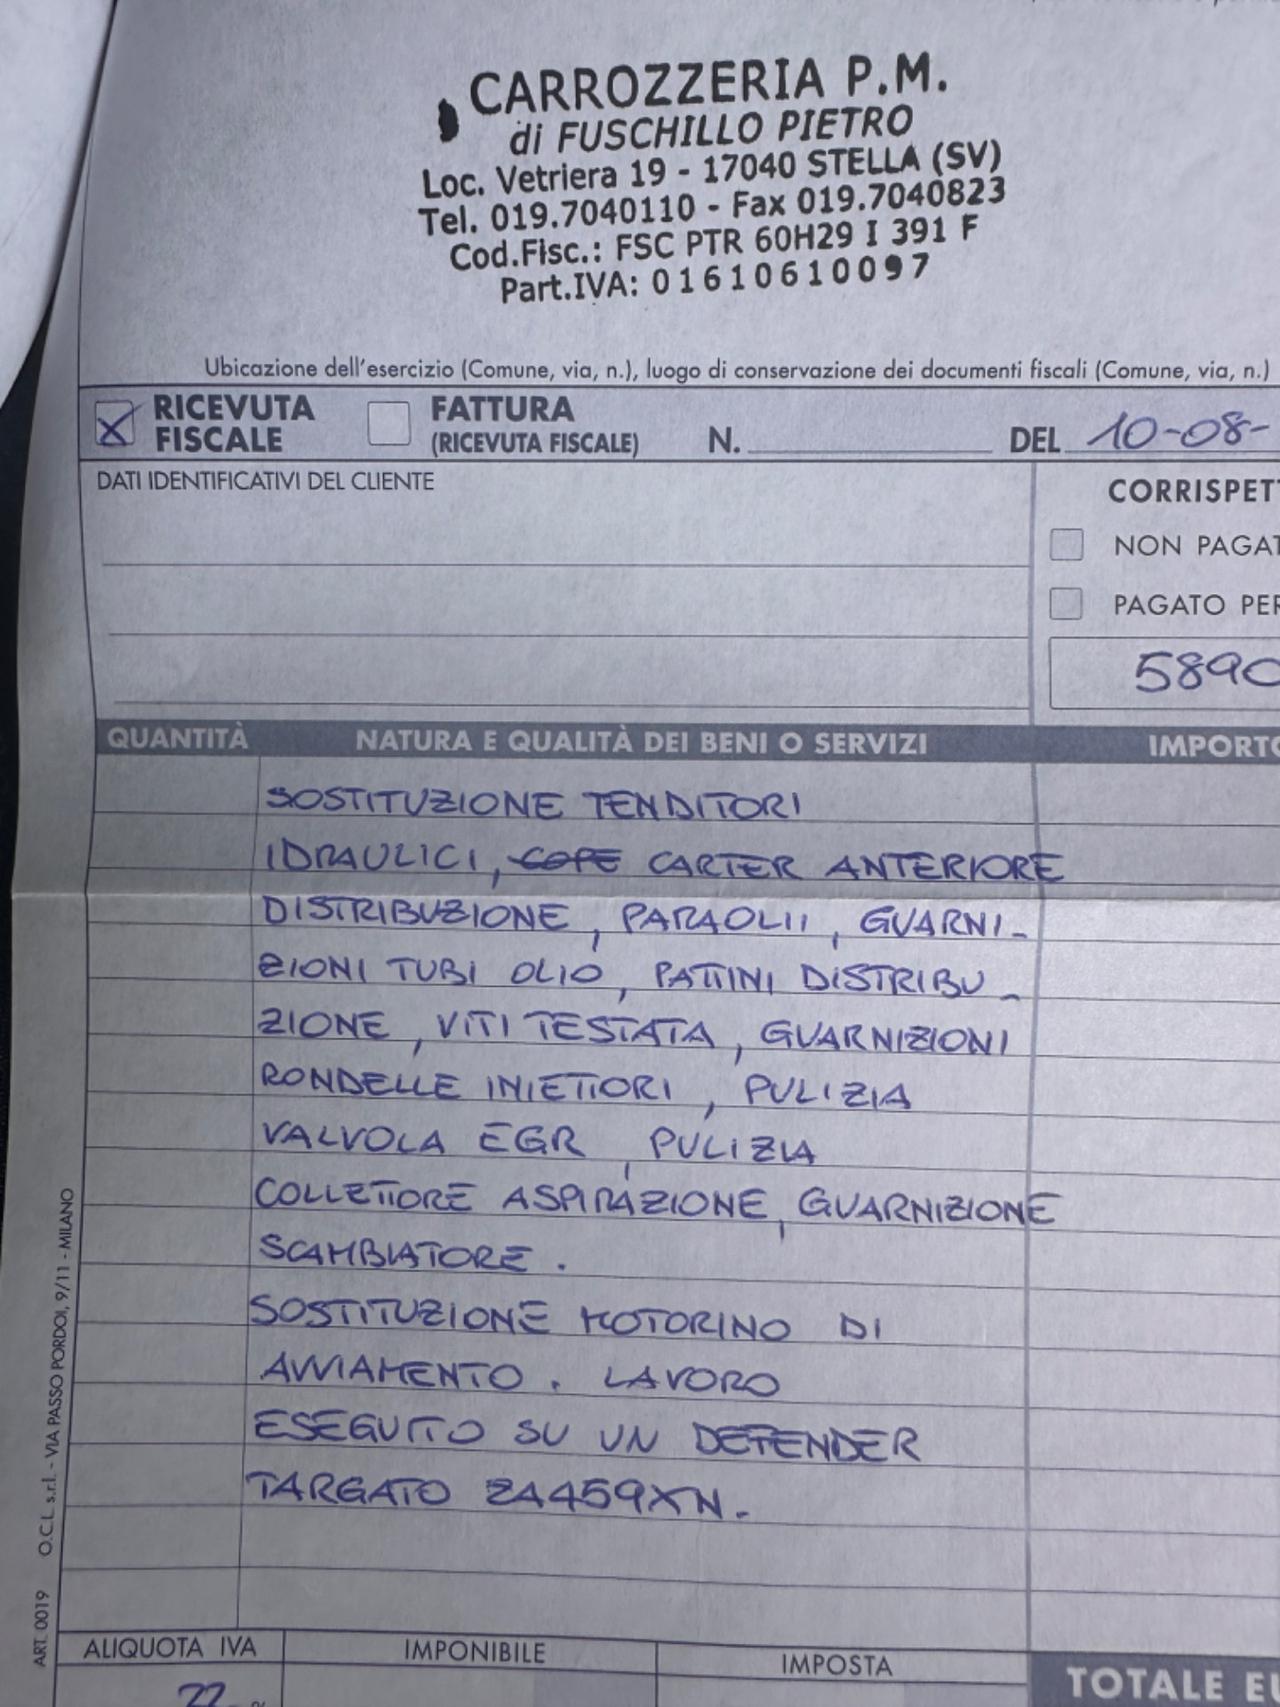 CARROZZERIA P.M.
di FUSCHILLO PIETRO
Loc. Vetriera 19 - 17040 STELLA (SV)
Tel. 019.7040110 - Fax 019.7040823
Cod.Fisc.: FSC PTR 60H29 I 391 F
Part.IVA: 01610610097
Ubicazione dell'esercizio (Comune, via, n.), luogo di conservazione dei documenti fiscali (Comune, via, n.)
RICEVUTA FISCALE FATTURA (RICEVUTA FISCALE) N. DEL 10-08-
DATI IDENTIFICATIVI DEL CLIENTE
CORRISPET
NON PAGAT
PAGATO PER
5890
QUANTITÀ NATURA E QUALITÀ DEI BENI O SERVIZI IMPORTO
SOSTITUZIONE TENDITORI
IDRAULICI, COPE CARTER ANTERIORE
DISTRIBUZIONE, PARAOLII, GUARNI-
ZIONI TUBI OLIO, PATTINI DISTRIBU-
ZIONE, VITI TESTATA, GUARNIZIONI
RONDELLE INIETTORI, PULIZIA
VALVOLA EGR, PULIZIA
COLLETTORE ASPIRAZIONE, GUARNIZIONE
SCAMBIATORE.
SOSTITUZIONE MOTORINO DI
AVVIAMENTO. LAVORO
ESEGUITO SU UN DEFENDER
TARGATO ZA459XN.
ART. 0019 O.C.L. s.r.l. - VIA PASSO PORDOI, 9/11 - MILANO
ALIQUOTA IVA IMPONIBILE IMPOSTA
22 %
TOTALE EU